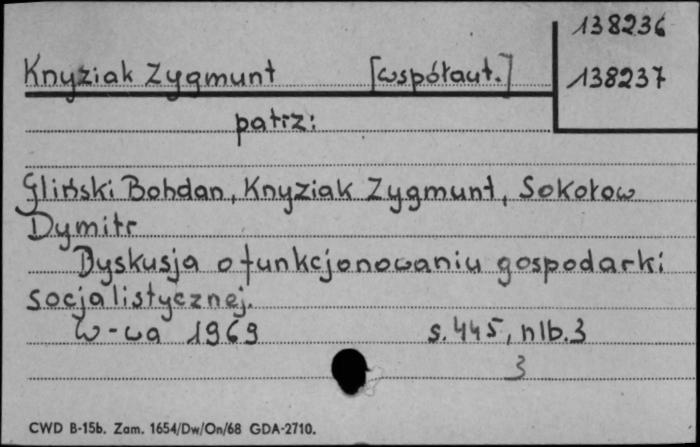 138236
Knyziak Zygmunt [współaut.] 138237
patrz:
Gliński Bohdan, Knyziak Zygmunt, Sokołow
Dymitr
Dyskusja o funkcjonowaniu gospodarki
socjalistycznej.
W-wa 1969 s. 445, nlb. 3
3
CWD B-15b. Zam. 1654/Dw/On/68 GDA-2710.